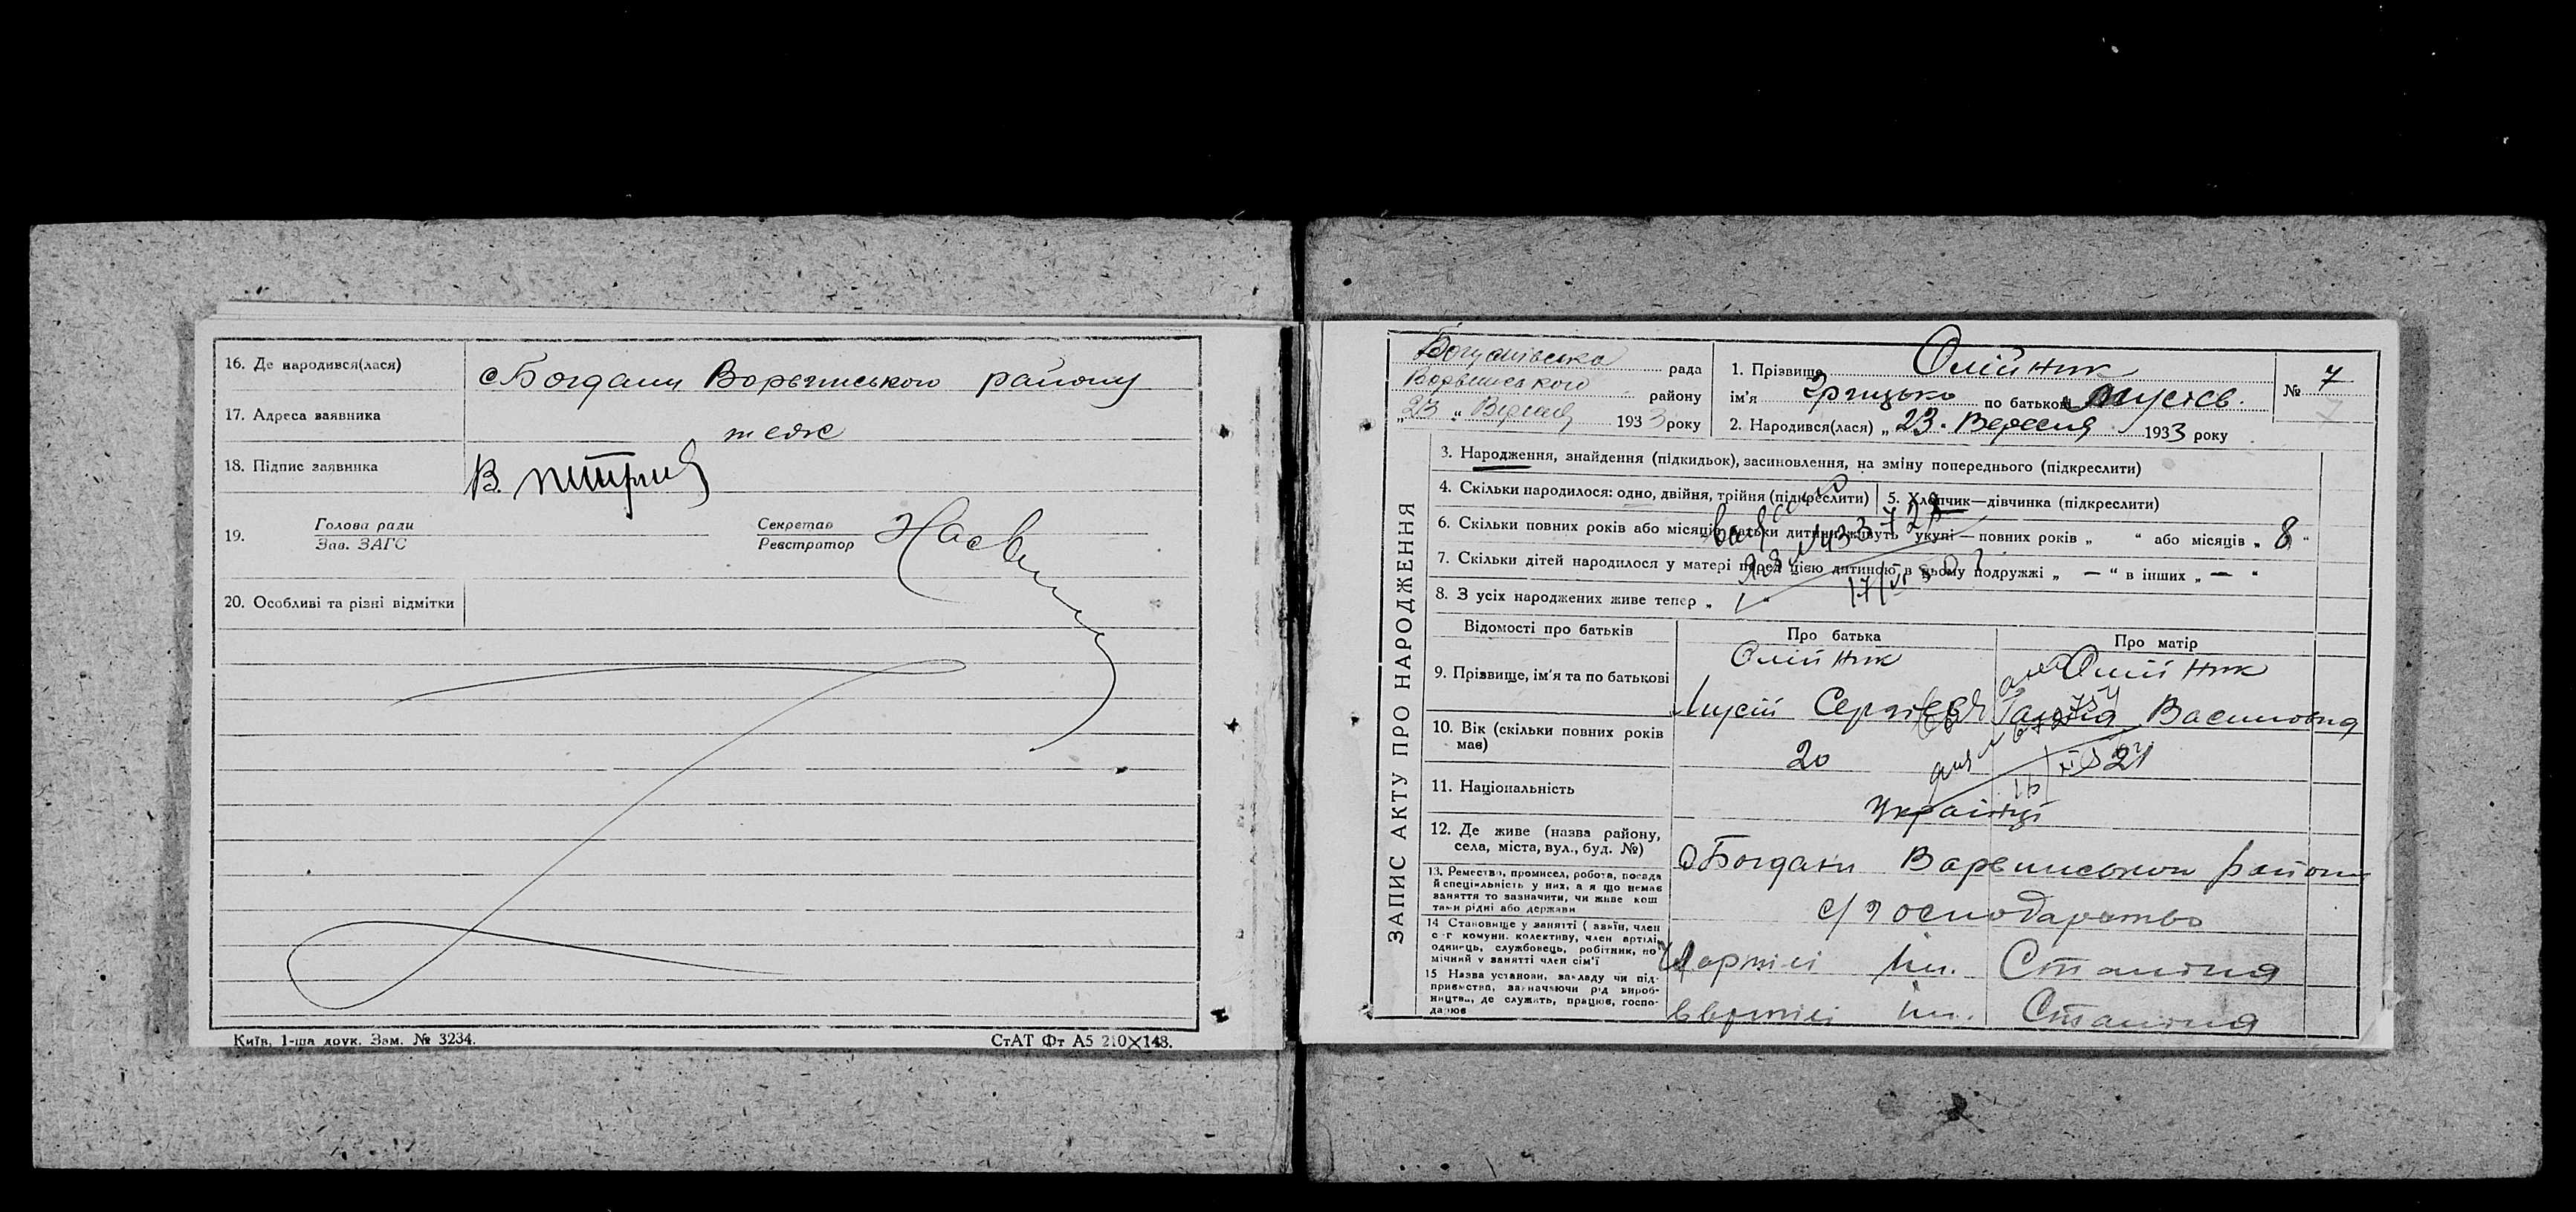 16. Де народився(лася)
с Богдани Варвинського району
17. Адреса заявника
теж
18. Підпис заявника
В.
19.
Голова ради
Зав. ЗАГС
Секретар
Реєстратор
20. Особливі та різні відмітки
Київ, 1-ша друк. Зам. № 3234.
СтАТ Фт А5 210×148.
рада
Варвинського району
„23 „ Вересня 1933 року
1. Прізвище Олійник
ім'я Грицько по батькові Мусієв.
2. Народився(лася) „23. Вересня 1933 року
№ 7
7
ЗАПИС АКТУ ПРО НАРОДЖЕННЯ
3. Народження, знайдення (підкидьок), засиновлення, на зміну попереднього (підкреслити)
4. Скільки народилося: одно, двійня, трійня (підкреслити)
5. Хлопчик—дівчинка (підкреслити)
6. Скільки повних років або місяців батьки дитини живуть укупі — повних років „ “ або місяців „ 8 “
7. Скільки дітей народилося у матері перед цією дитиною в цьому подружжі „ — “ в інших „ — “
8. З усіх народжених живе тепер „ “
Відомості про батьків
Про батька
Про матір
9. Прізвище, ім'я та по батькові
Олійник
Мусій
Олійник
Василівна
10. Вік (скільки повних років має)
20
21
11. Національність
Українці
12. Де живе (назва району,
села, міста, вул., буд. №)
с Богдани Варвинського району
13. Ремество, промисел, робота, посада
й спеціяльність у них, а якщо немає
заняття то зазначити, чи живе кош
тами рідні або держави
с/господарство
14 Становище у занятті (хазяїн, член
с-г комуни, колективу, член артілі,
одинець, службовець, робітник, по
мічний у занятті член сім'ї
артілі Ім. Сталіна
15 Назва установи, закладу чи під-
приємства, зазначаючи рід вироб-
ництва, де служить, працює, госпо-
дарює
в артілі Ім. Сталіна